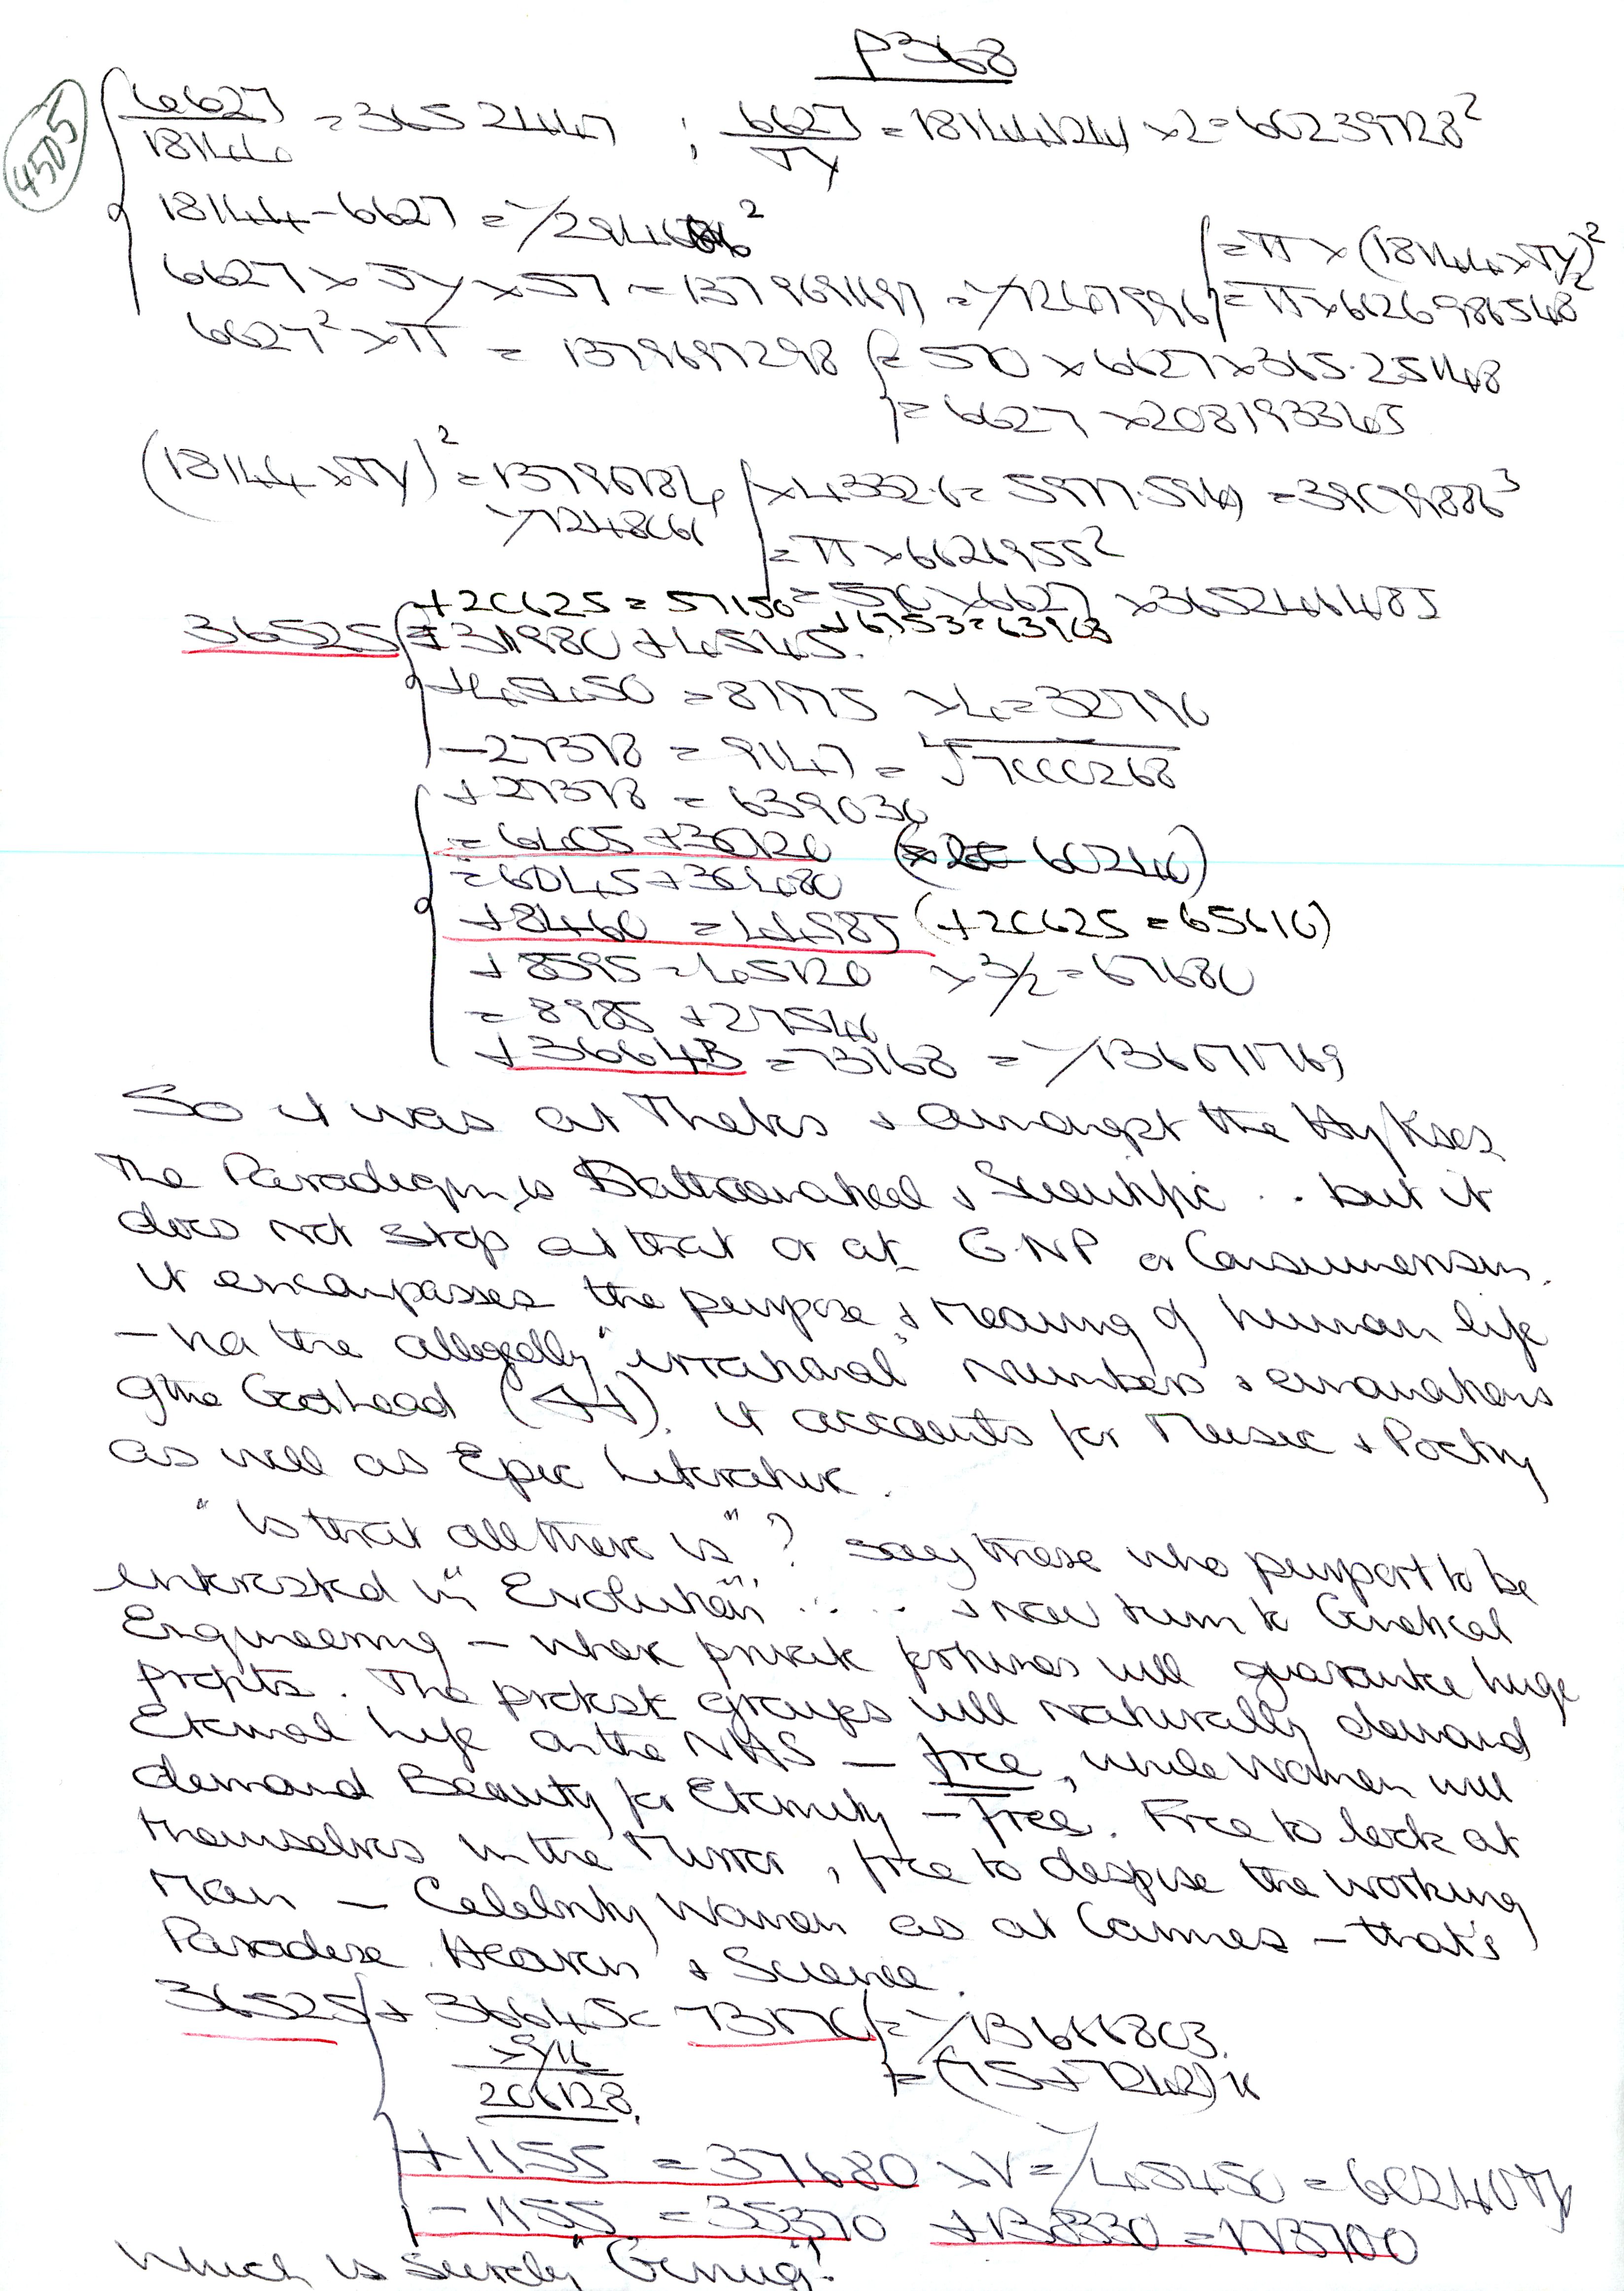 P368
4505
6627/18144 = 36524447 ; 6627/πy = 18144124 x2 = 60239728²
18144 - 6627 =
6627 x πy x 57 = 1379691697
= π x (18144 x πy)²
= π x 6626986548
6627² x π = 1379697298
= 570 x 6627 x 365.25148
= 6627 x 208193365
(18144 x πy)² = 13796784
x 4332.6 = 5977.5940 = 39099886³
= π x 6626955²
= 570 x 6627 x 3652464485
+ 20625 = 57150 + 6753 = 63903
36525 = 31980 + 4545
+ 45450 = 81975 x4 = 32790
- 27378 = 9147 = √7000268
+ 27378 = 639030
= 6405 + 30120 (x2 = 60240)
= 6045 + 30480
+ 8460 = 44985 (+ 20625 = 65610)
+ 8595 = 45120 x 3/2 = 67680
= 8985 + 27540
+ 36643 = 73168 = y/136671769
So it was at Thebes & amongst the Hyksos
The Paradigm is Mathematical & Scientific .. but it
does not stop at that or at GNP or Consumerism.
it encompasses the purpose & Meaning of human life
- via the allegedly "irrational" Numbers & emanations
of the Godhead ( ). it accounts for Music & Poetry
as well as Epic Literature.
"Is that all there is"? say those who purport to be
interested in "Evolution" .... & now turn to Genetical
Engineering - where private fortunes will guarantee huge
profits. The protest groups will naturally demand
Eternal Life on the NHS - free, while Women will
demand Beauty for Eternity - free. Free to look at
themselves in the Mirror, free to despise the working
Man - Celebrity Women as at Cannes - that's
Paradise Heaven & Science.
36525 + 36645 = 73170 = y/13668803
x 9/16
206128
= (15 + 7242) x
+ 1155 = 37680 x V = y/45450 = 60240πy
- 1155 = 35370 + 138330 = 173700
Which is surely "Genug"!